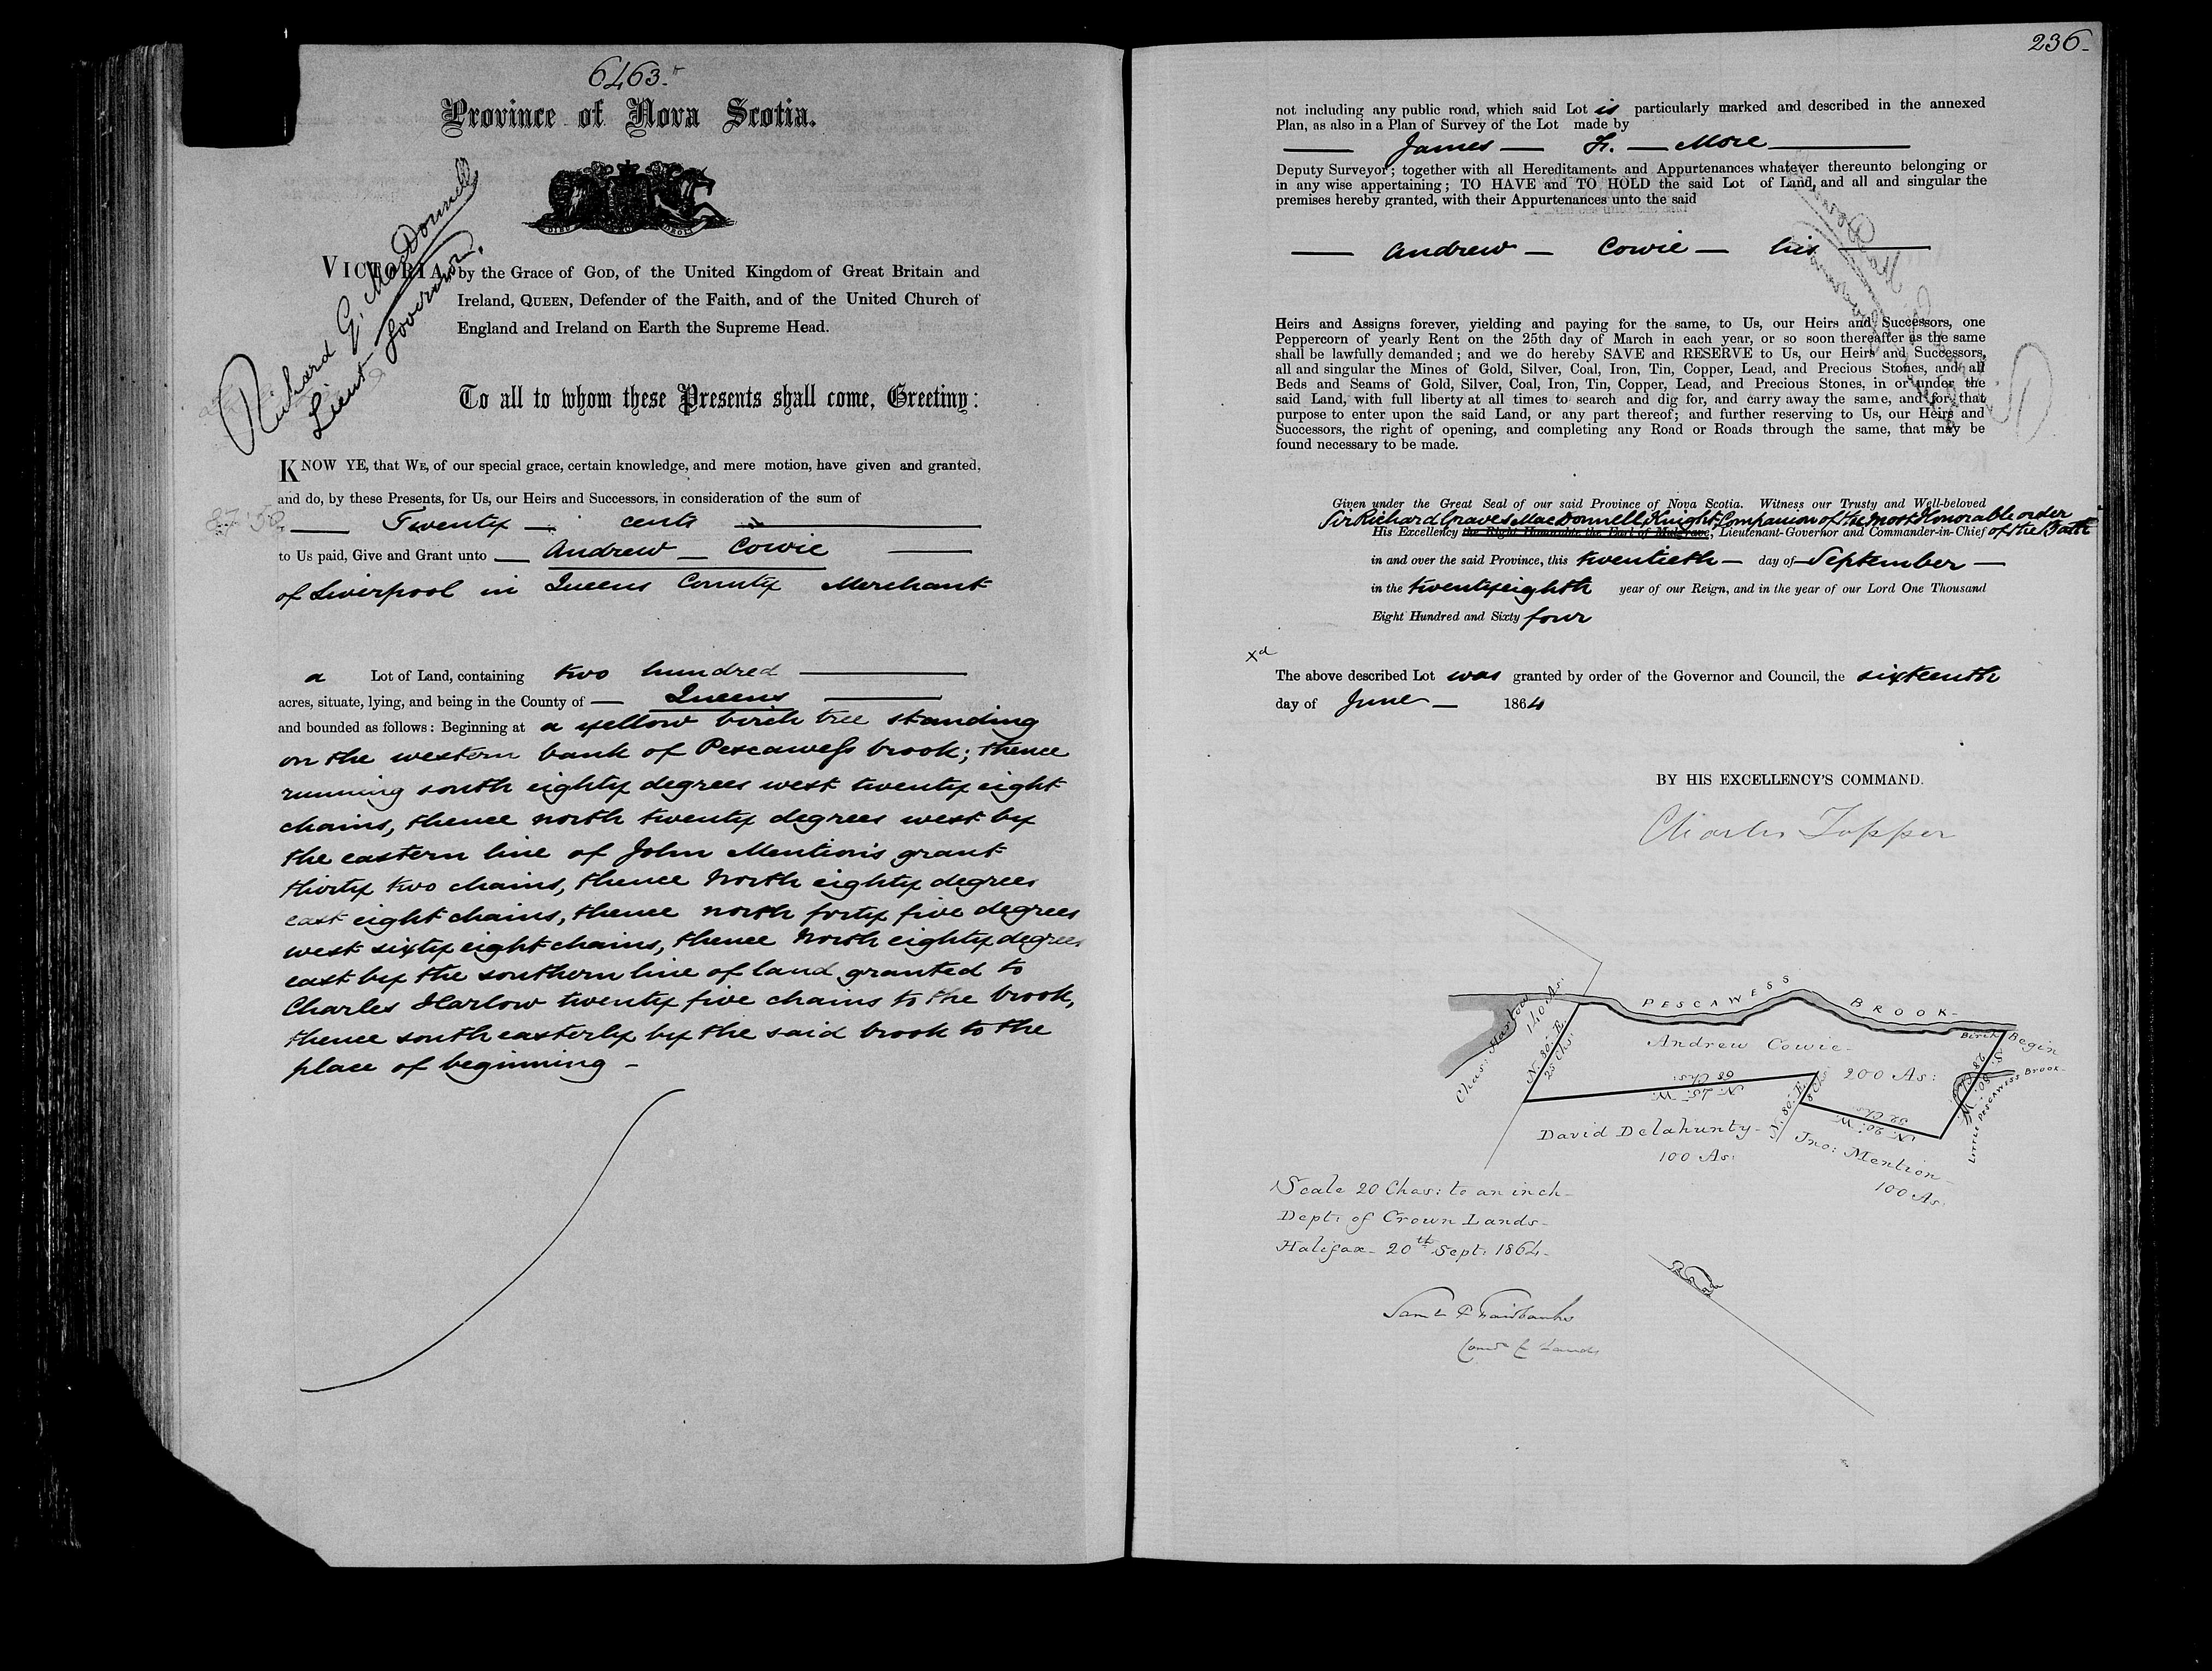 6463.
Province of Nova Scotia.
Richard G. MacDonnell
Lieut Governor.
VICTORIA, by the Grace of GOD, of the United Kingdom of Great Britain and
Ireland, QUEEN, Defender of the Faith, and of the United Church of
England and Ireland on Earth the Supreme Head.
To all to whom these Presents shall come, Greeting:
KNOW YE, that WE, of our special grace, certain knowledge, and mere motion, have given and granted,
and do, by these Presents, for Us, our Heirs and Successors, in consideration of the sum of
87.50 Twenty cents
to Us paid, Give and Grant unto Andrew Cowie
of Liverpool in Queens County Merchant
a Lot of Land, containing two hundred
acres, situate, lying, and being in the County of Queens
and bounded as follows: Beginning at a yellow birch tree standing
on the western bank of Pescawess brook; thence
running south eighty degrees west twenty eight
chains, thence north twenty degrees west by
the eastern line of John Mention's grant
thirty two chains, thence North eighty degrees
east eight chains, thence north forty five degrees
west sixty eight chains, thence North eighty degrees
east by the southern line of land granted to
Charles Harlow twenty five chains to the brook,
thence south easterly by the said brook to the
place of beginning -
236.
not including any public road, which said Lot is particularly marked and described in the annexed
Plan, as also in a Plan of Survey of the Lot made by
James F. More
Deputy Surveyor; together with all Hereditaments and Appurtenances whatever thereunto belonging or
in any wise appertaining; TO HAVE and TO HOLD the said Lot of Land, and all and singular the
premises hereby granted, with their Appurtenances unto the said
Andrew Cowie his
Heirs and Assigns forever, yielding and paying for the same, to Us, our Heirs and Successors, one
Peppercorn of yearly Rent on the 25th day of March in each year, or so soon thereafter as the same
shall be lawfully demanded; and we do hereby SAVE and RESERVE to Us, our Heirs and Successors,
all and singular the Mines of Gold, Silver, Coal, Iron, Tin, Copper, Lead, and Precious Stones, and all
Beds and Seams of Gold, Silver, Coal, Iron, Tin, Copper, Lead, and Precious Stones, in or under the
said Land, with full liberty at all times to search and dig for, and carry away the same, and for that
purpose to enter upon the said Land, or any part thereof; and further reserving to Us, our Heirs and
Successors, the right of opening, and completing any Road or Roads through the same, that may be
found necessary to be made.
Given under the Great Seal of our said Province of Nova Scotia. Witness our Trusty and Well-beloved
Sir Richard Graves MacDonnell, Knight, Companion of the Most Honorable order
His Excellency the Right Honorable the Earl of Mulgrave, Lieutenant-Governor and Commander-in-Chief of the Bath
in and over the said Province, this twentieth day of September
in the twenty eighth year of our Reign, and in the year of our Lord One Thousand
Eight Hundred and Sixty four
xd
The above described Lot was granted by order of the Governor and Council, the sixteenth
day of June 1864
BY HIS EXCELLENCY'S COMMAND.
Charles Tupper
PESCAWESS BROOK
Chas: Harlow
140 As.
N. 80. E.
25 Chs.
Birch Begin
Andrew Cowie
200 As:
68 Chs:
N. 45. W.
N. 80. E.
8 Chs
32 Chs
N. 20. W.
28 Chs
S. 80. W.
LITTLE PESCAWESS BROOK
David Delahunty
100 As:
Jno: Mention
100 As.
Scale 20 Chas: to an inch
Dept: of Crown Lands
Halifax 20th Sept: 1864
Saml P Fairbanks
Comr C Lands